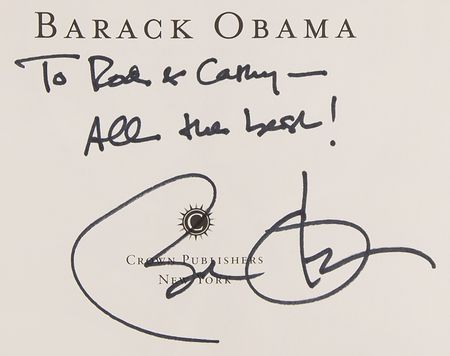 BARACK OBAMA
To Rod & Cathy —
All the best!
CROWN PUBLISHERS
NEW YORK